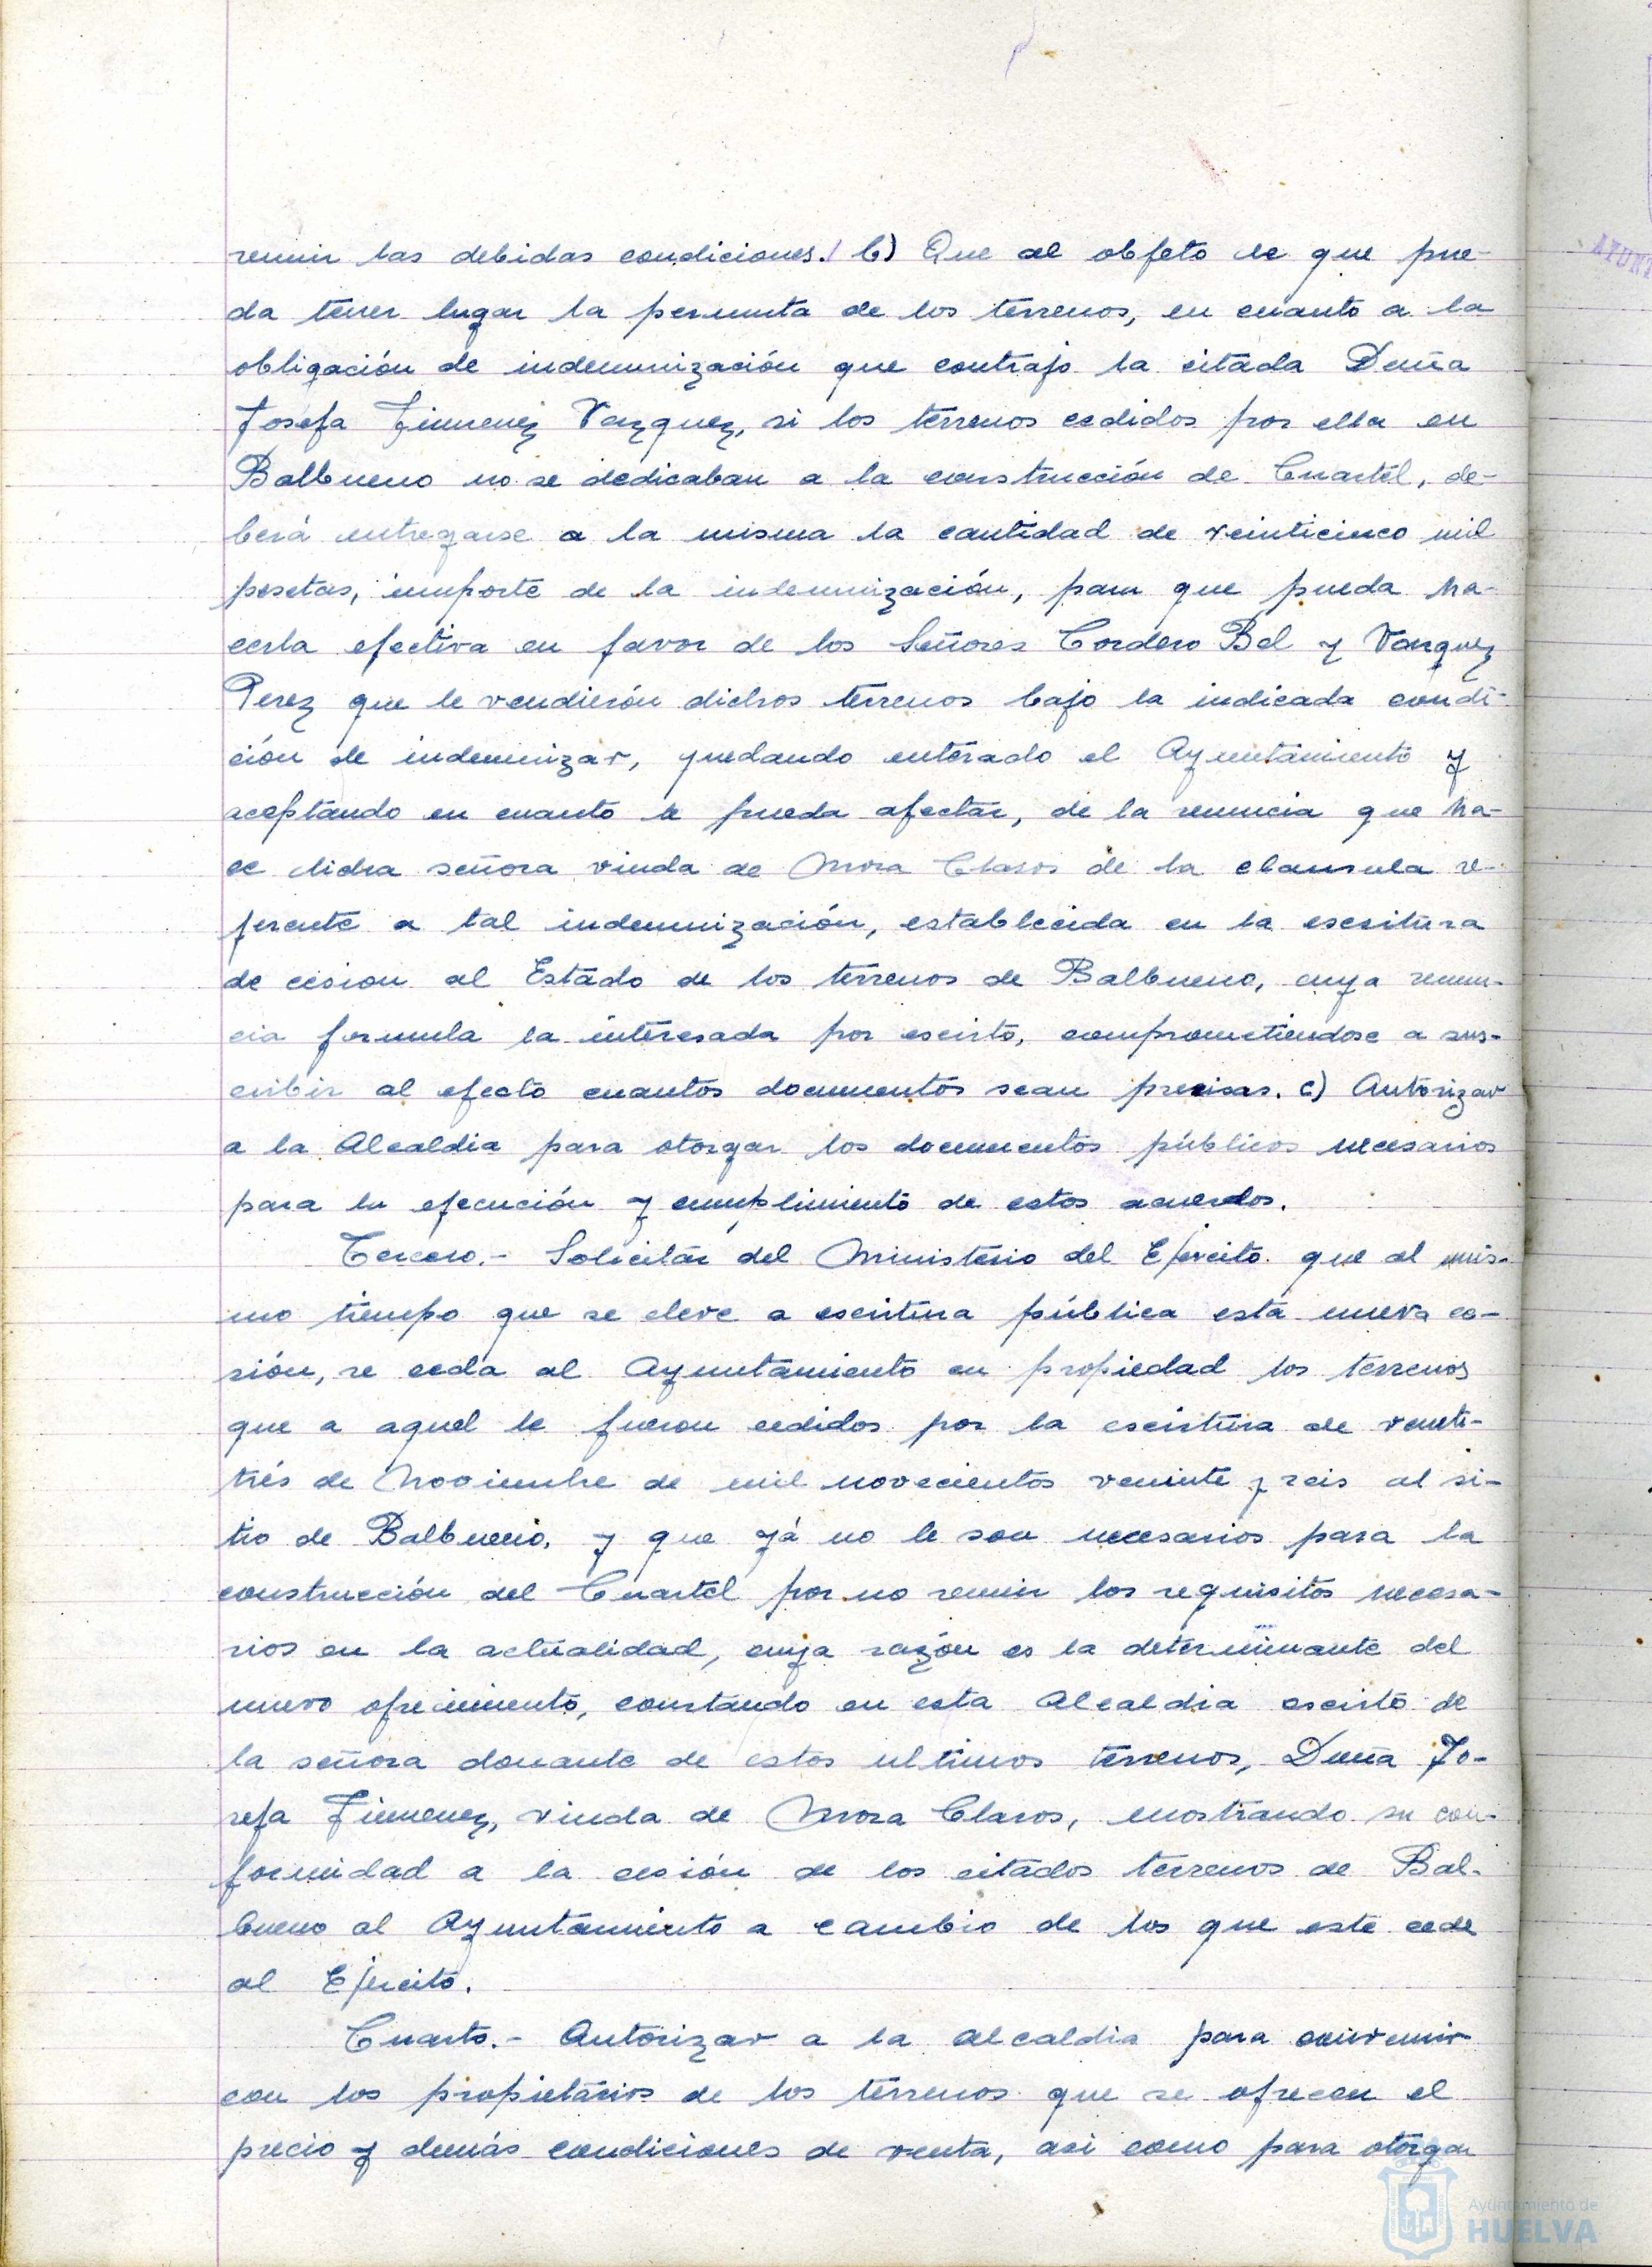 reunir las debidas condiciones. b) Que al objeto de que pue-
da tener lugar la permuta de los terrenos, en cuanto a la
obligación de indemnización que contrajo la citada Doña
Josefa Jimenez Vazquez, si los terrenos cedidos por ella en
Balbueno no se dedicaban a la construcción de Cuartel, de-
berá entregarse a la misma la cantidad de veinticinco mil
pesetas, importe de la indemnización, para que pueda ha-
cerla efectiva en favor de los Señores Cordero Bel y Vazquez
Perez que le vendierón dichos terrenos bajo la indicada condi-
ción de indemnizar, quedando enterado el Ayuntamiento y
aceptando en cuanto le pueda afectar, de la renuncia que ha-
ce dicha señora viuda de Mora Claros de la clausula re-
ferente a tal indemnización, establecida en la escritura
de cesion al Estado de los terrenos de Balbueno, cuya renun-
cia formula la interesada por escrito, comprometiendose a sus-
cribir al efecto cuantos documentos sean precisos. c) Autorizar
a la Alcaldia para otorgar los documentos públicos necesarios
para la ejecución y cumplimiento de estos acuerdos.
Tercero.- Solicitar del Ministerio del Ejercito que al mis-
mo tiempo que se eleve a escritura pública esta nueva ce-
sión, se ceda al Ayuntamiento en propiedad los terrenos
que a aquel le fueron cedidos por la escritura de venti-
trés de Noviembre de mil novecientos veninte y seis al si-
tio de Balbueno, y que yá no le son necesarios para la
construcción del Cuartel por no reunir los requisitos necesa-
rios en la actualidad, cuya razón es la determinante del
nuevo ofrecimiento, constando en esta Alcaldia escrito de
la señora donante de estos ultimos terrenos, Doña Jo-
sefa Jimenez, viuda de Mora Claros, mostrando su con-
formidad a la cesión de los citados terrenos de Bal-
bueno al Ayuntamiento a cambio de los que este cede
al Ejercito.
Cuarto.- Autorizar a la alcaldia para convenir
con los propietarios de los terrenos que se ofrecen el
precio y demás condiciones de venta, asi como para otorgar
AYUNT
Ayuntamiento de
HUELVA